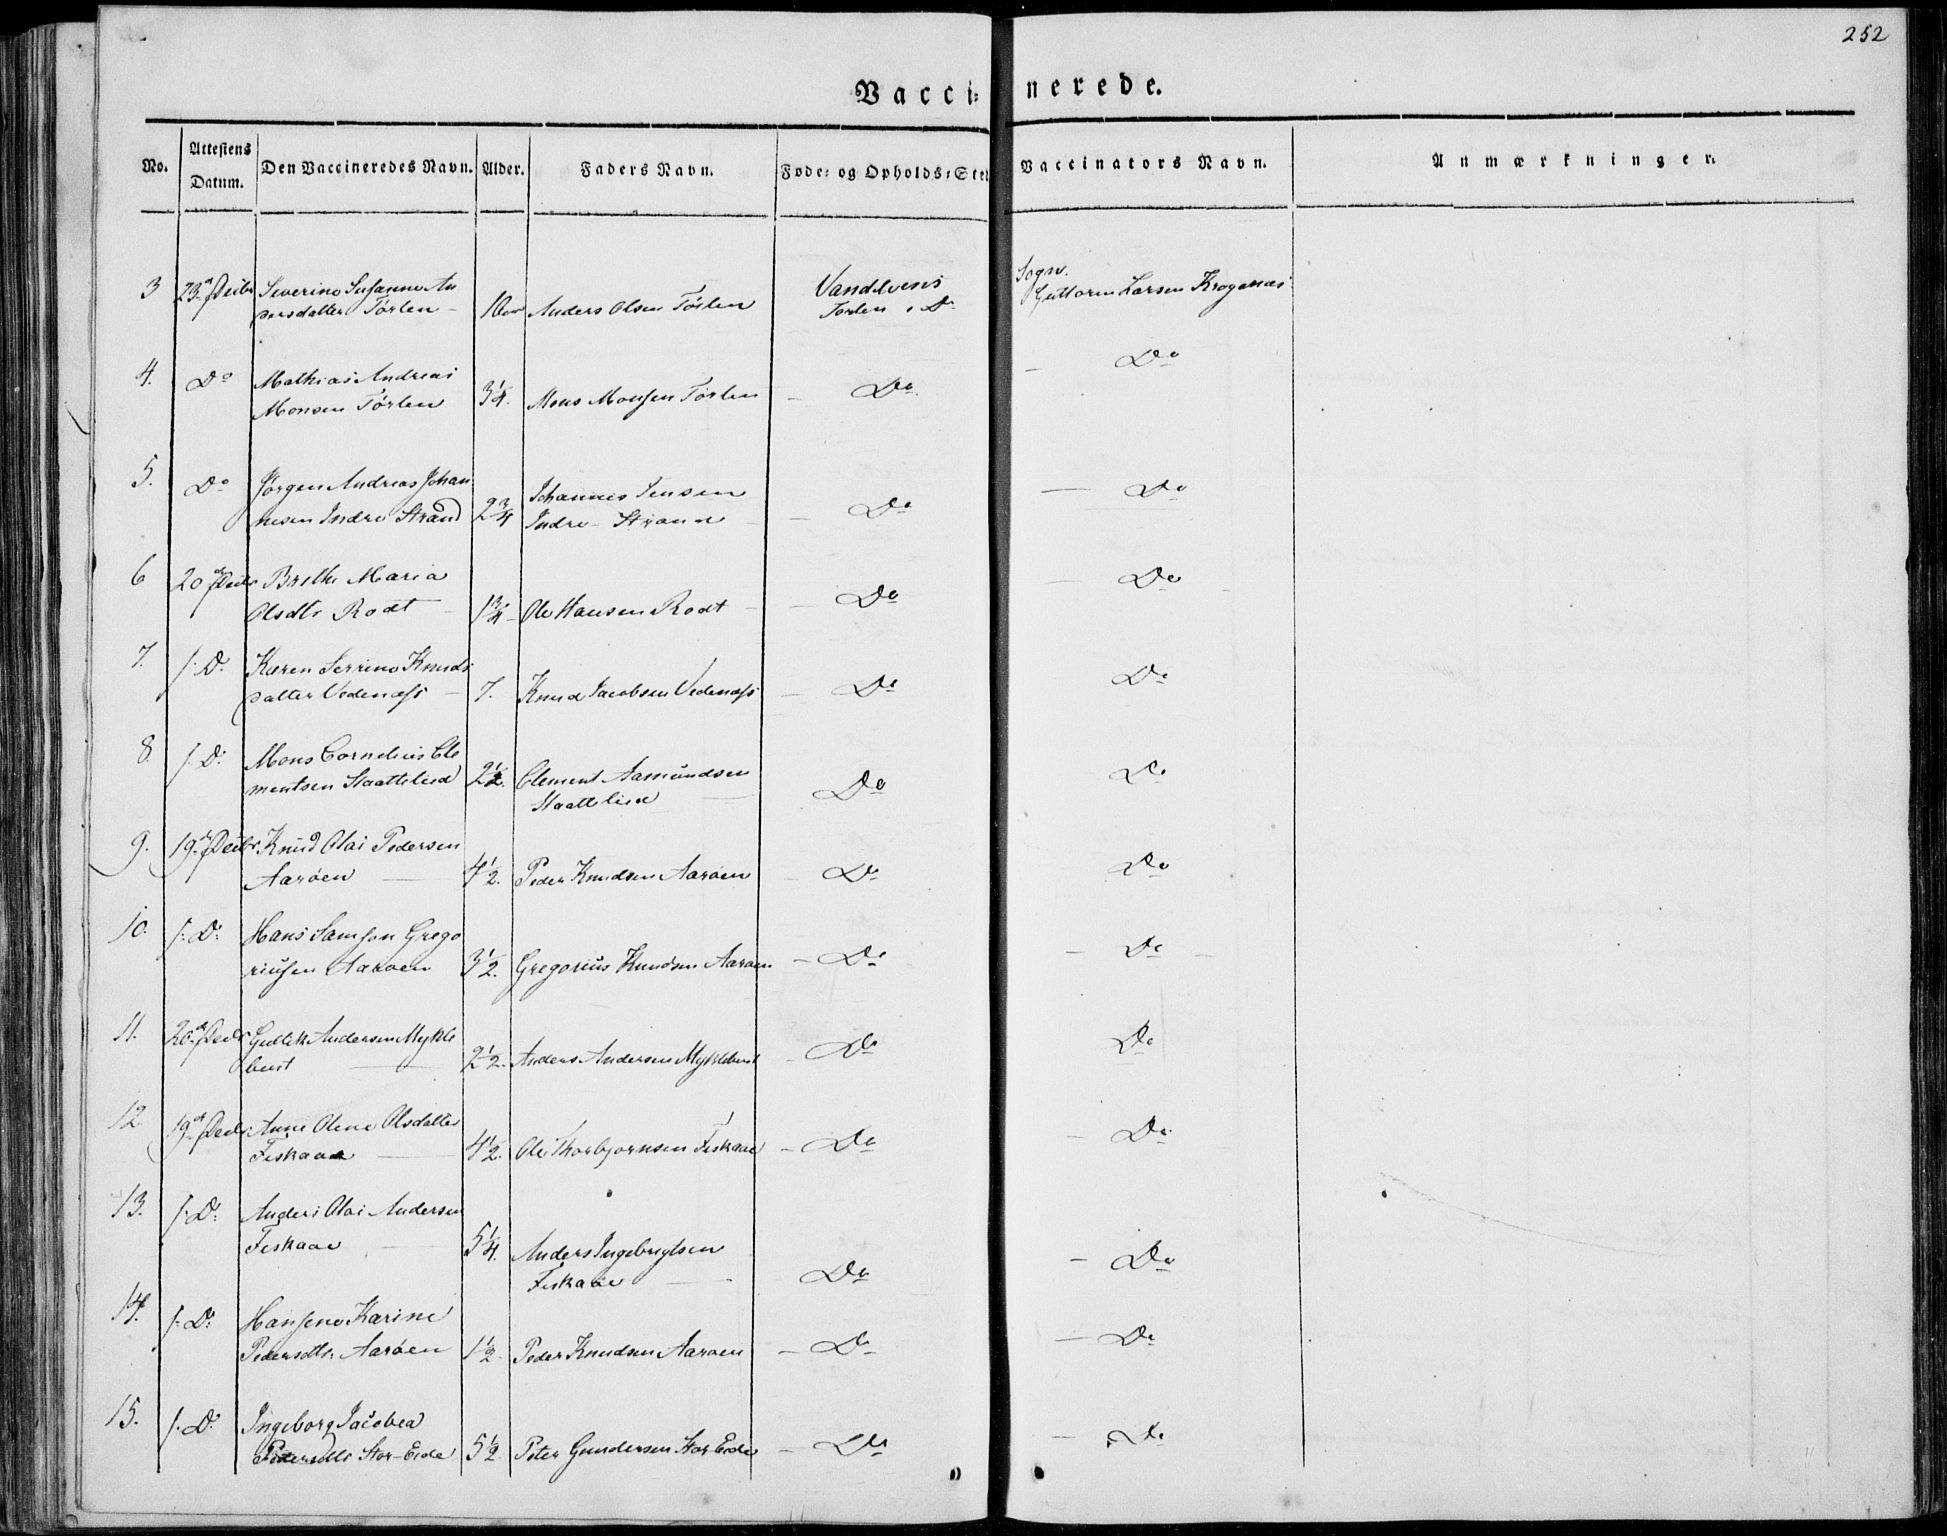 252
Vacci-
nerede.
No.
Attestens
Datum.
Den Vaccineredes Navn.
Alder.
Faders Navn.
Føde- og Opholds-Sted
Vaccinators Navn.
Anmærkninger.
3
23de Decbr
Severine Susanne An
dersdatter Törlen
Anders Olsen Törlen
Vandelvens
Torlen i Do
Sogn.
Guttorm Larsen Krogenæs
4.
Do
Mathias Andreas
Monsen Törlen
3 1/4.
Mons Monsen Törlen
Do
Do
5.
Do
Jörgen Andreas Johan
nesen Indre Strand
2 3/4
Johannes Jensen
Indre Strand
Do
Do
6
20de Decbr
Brithe Maria
Olsdtr Rodt
1 3/4
Ole Hansen Rodt
Do
Do
7.
/: Do
Karen Serrine Knuds
datter Vedenæss
7.
Knud Jacobsen Vedenæss
Do
Do
8
/: Do
Mons Cornelius Cle
mentsen Staattelied
2 1/2.
Clement Aamundsen
Staattelied
Do
Do
9.
19de Decbr.
Knud Olai Pedersen
Aaröen
4 1/2.
Peder Knudsen Aaröen
Do
Do
10.
/: Do:
Hans Samson Grego
riusen Aaroen
3 1/2.
Gregorius Knudsen Aaroen
Do
Do
11.
20de Decbr
Gullik Andersen Mykle
bust
2 1/2.
Anders Andersen Myklebust
Do
Do
12
19de Decbr
Anne Olene Olsdatter
Fiskaae
4 1/2.
Ole Thorbjornsen Fiskaae
Do
Do
13.
/: Do:
Anders Olai Andersen
Fiskaae
5 1/4.
Anders Ingebrigtsen
Fiskaae
Do
Do
14.
/: Do:
Hansene Karine
Pedersdtr. Aaröen
1 1/2
Peder Knudsen Aaroen
Do
Do
15.
/: Do:
Ingeborg Jacobea
Petersdtr Stor-Eide
5 1/2
Peter Gundersen Stor Eide
Do
Do